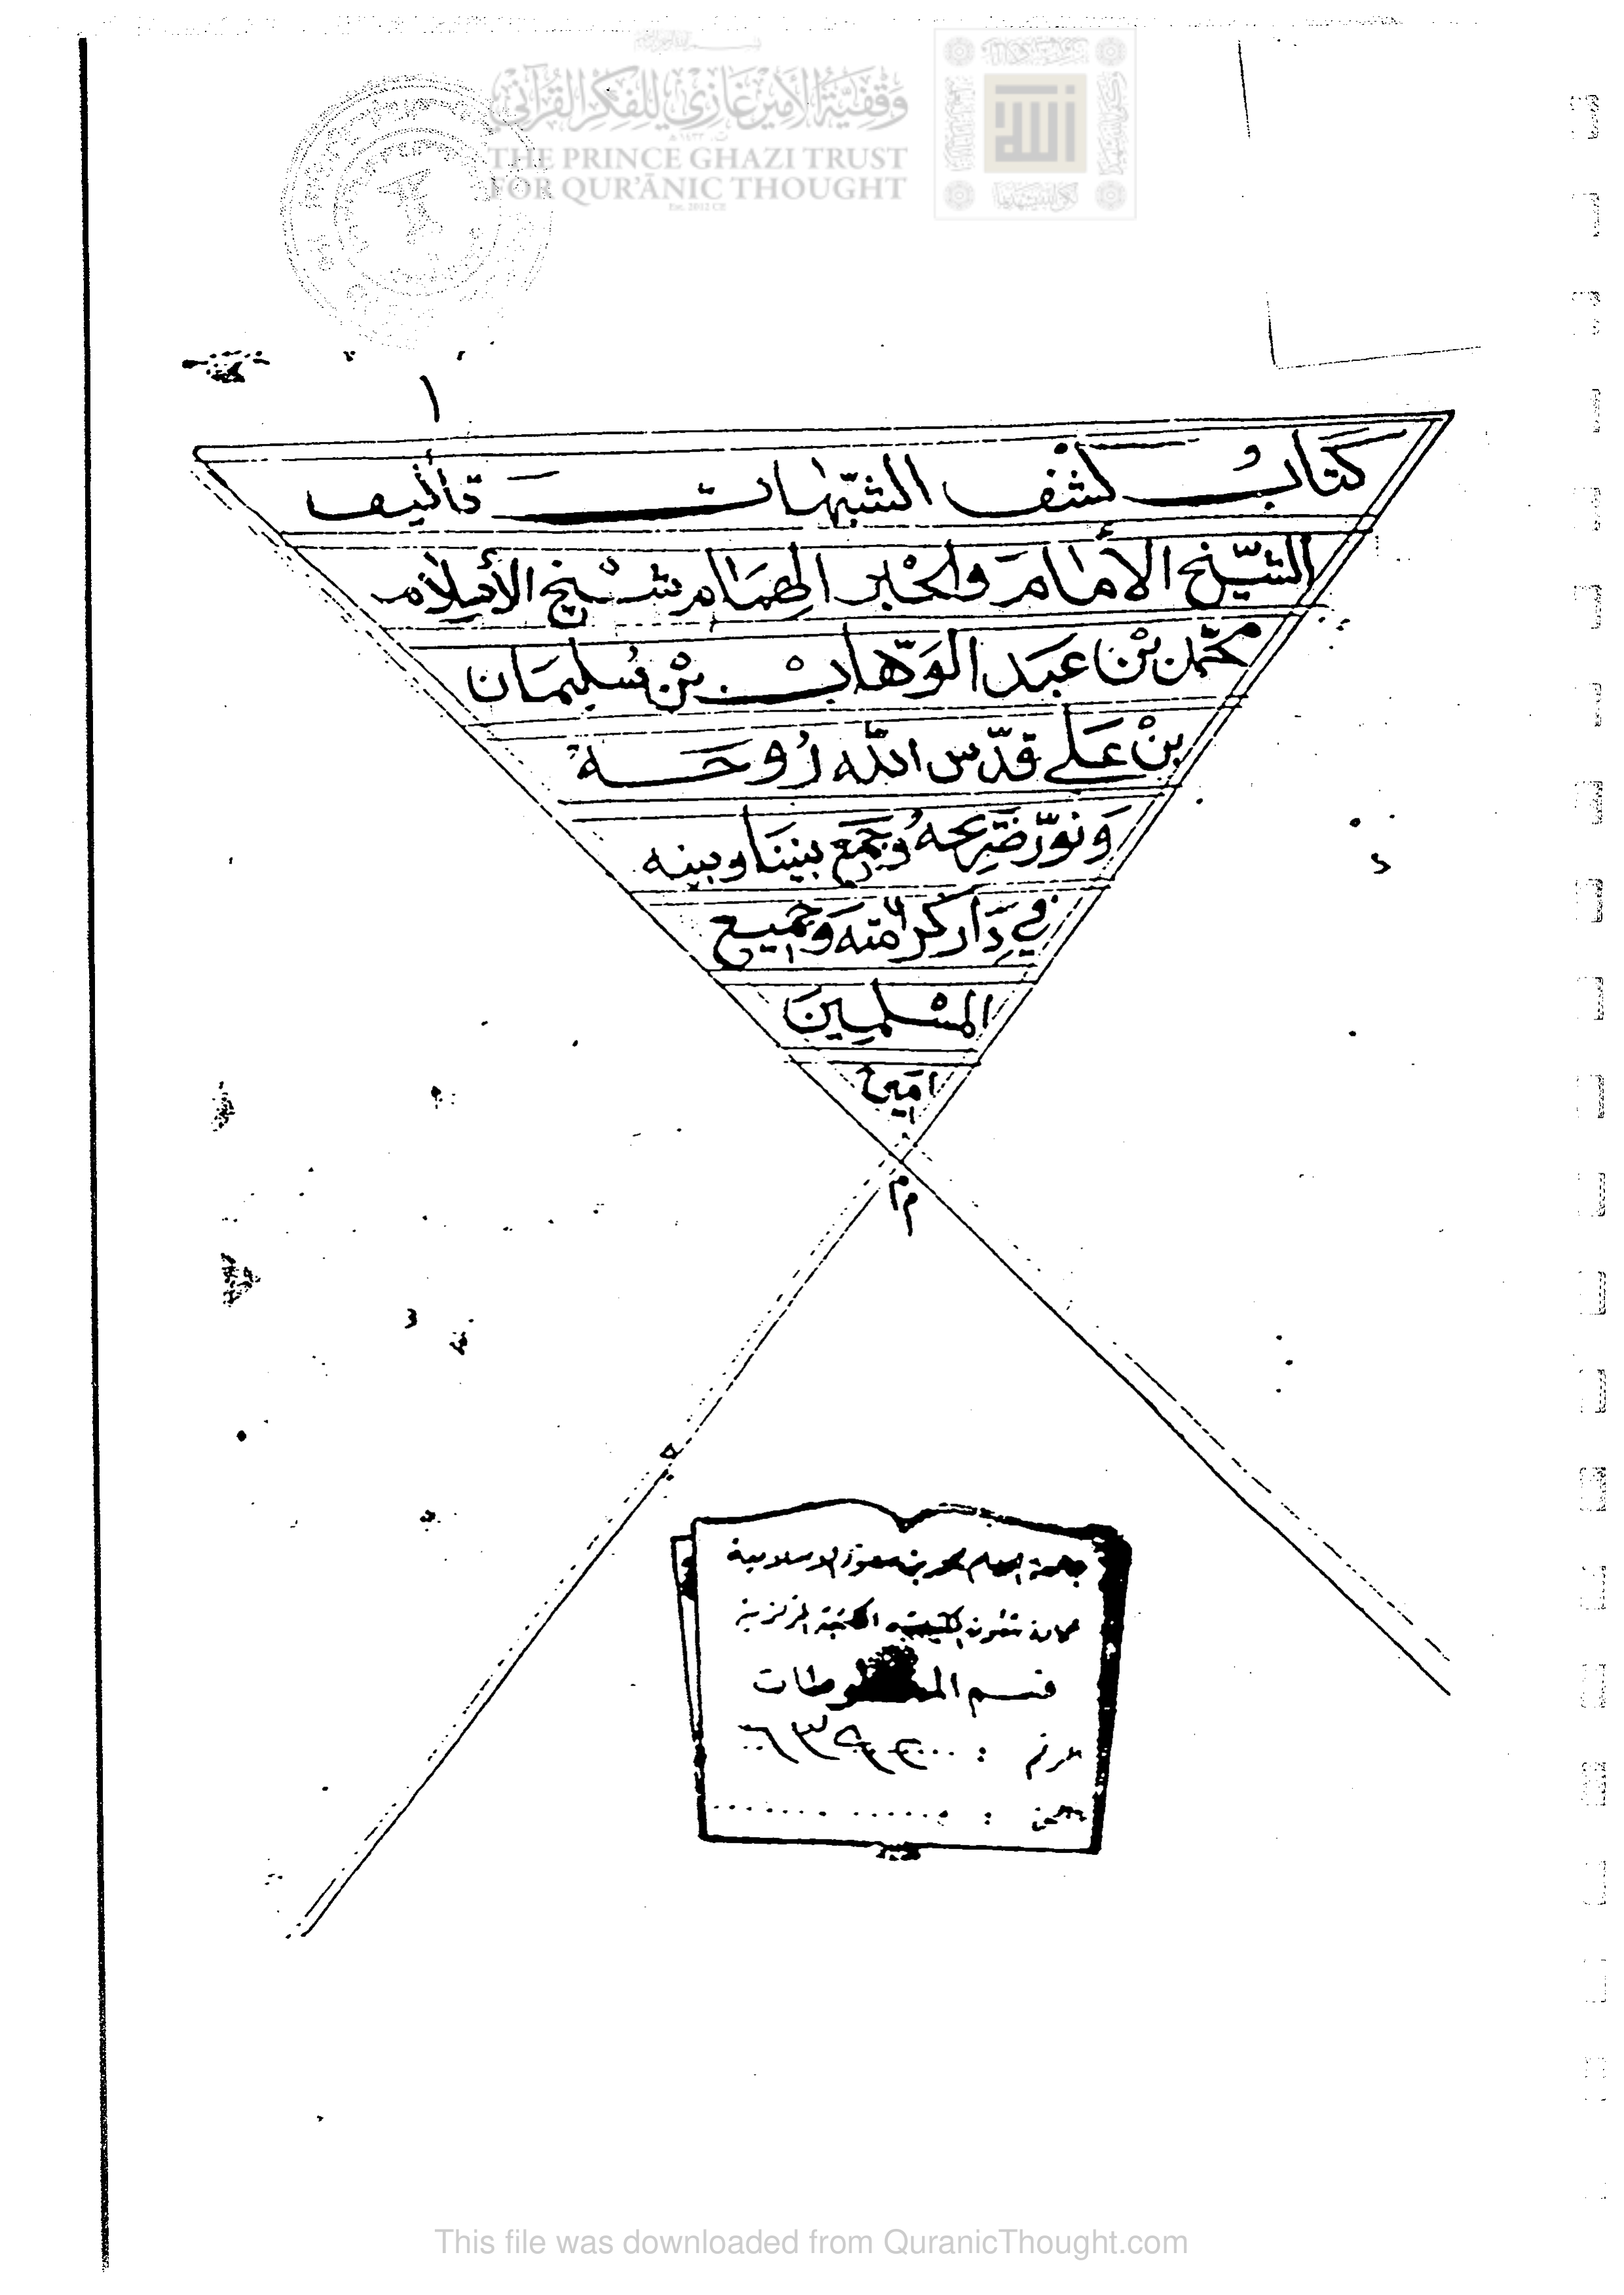 وقفية الأمير غازي للفكر القرآني
THE PRINCE GHAZI TRUST
FOR QUR'ĀNIC THOUGHT
Est. 2012 CE
١
كتابُ كشف الشبّهات تأليف
الشّيخ الأمام والحْبر الهمام شيْخ الأسلام
محمّد بْن عبَد الوَهّاب بْن سُليمَان
بنْ عَلي قدّس الله رُوحَه
وَنوّر ضَرِيحهُ وَجَمَع بيننَا وبينه
في دَار كرَامته وَجميع
المسْلمِينَ
امَين
م م
جامعة الإمام محمد بن سعود الإسلامية
عمادة شئون المكتبات المكتبة المركزية
قسم المخطوطات
الرقم :
الفن :
This file was downloaded from QuranicThought.com